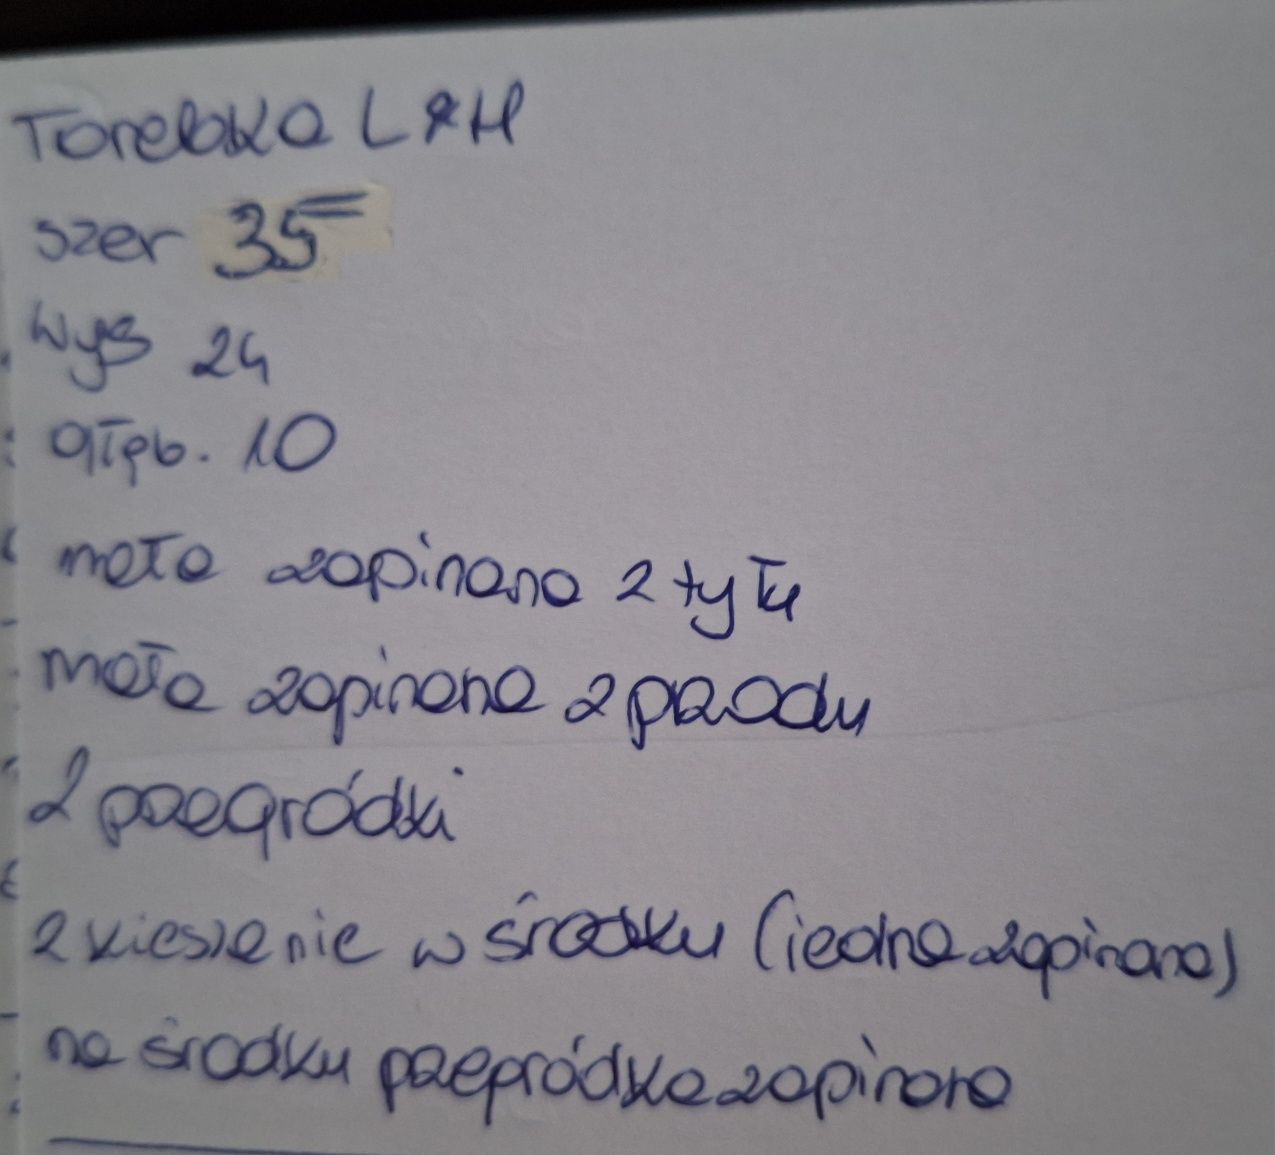 Torebka L&H
szer 35
wys 24
głęb. 10
mała zapinana z tyłu
mała zapinana z przodu
2 przegródki
2 kieszenie w środku (jedna zapinana)
na środku przegródka zapinana